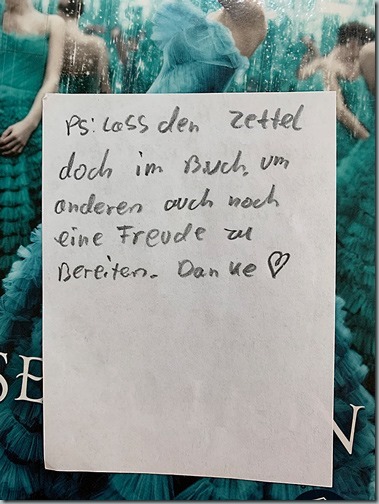 PS: Lass den Zettel
doch im Buch, um
anderen auch noch
eine Freude zu
Bereiten. Danke ♡
SE
N